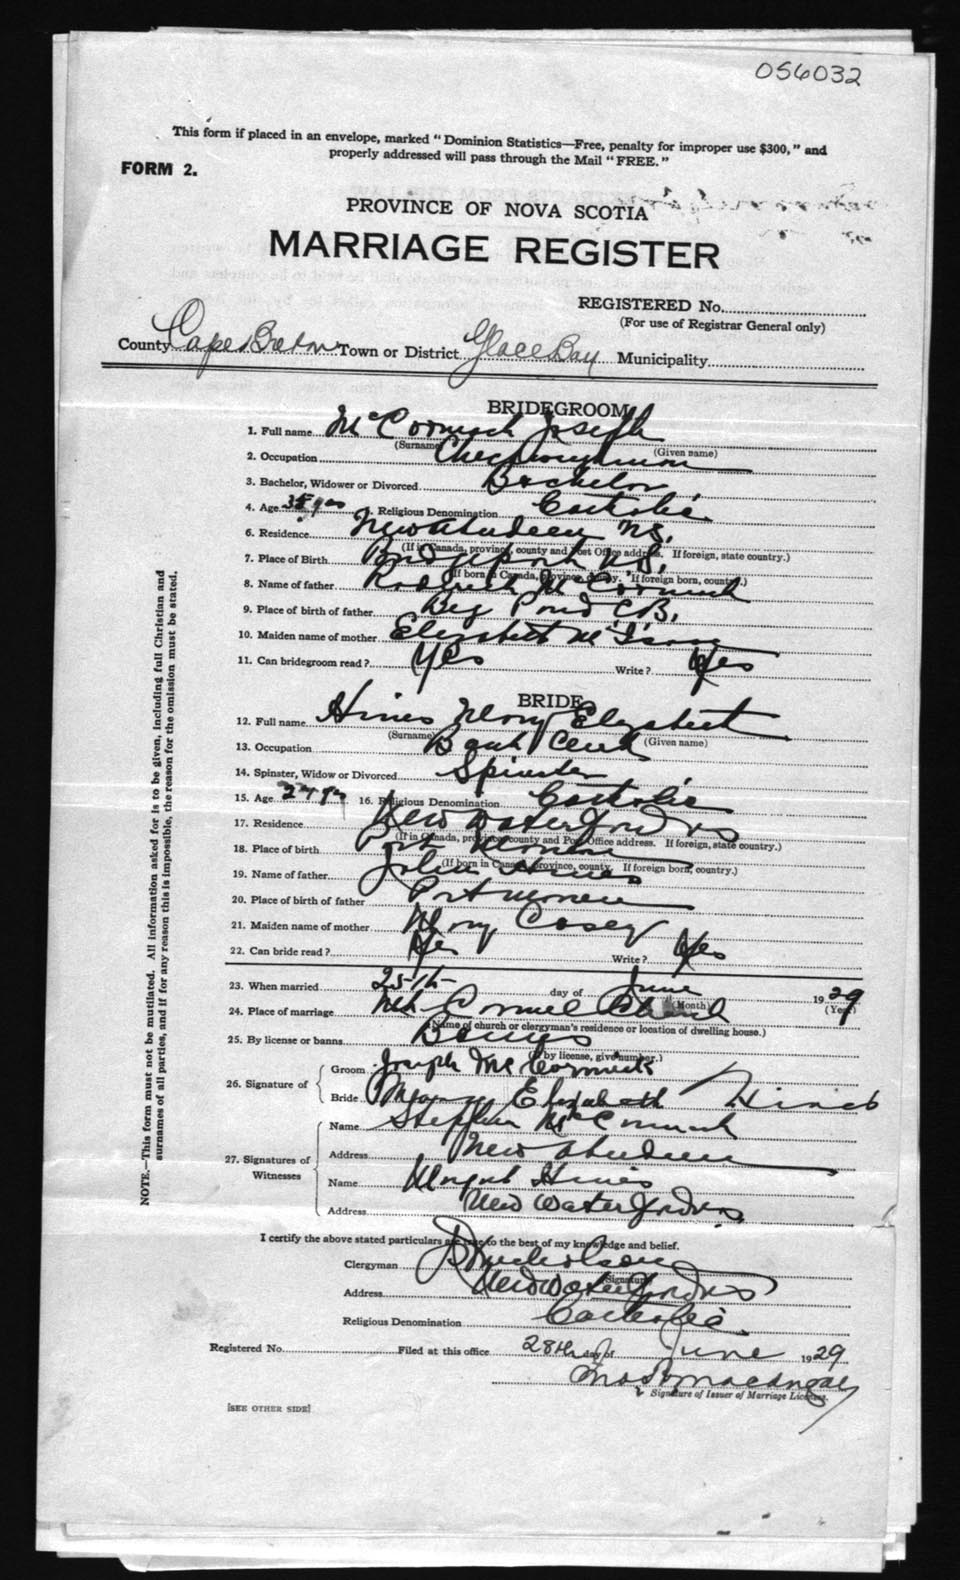 056032
This form if placed in an envelope, marked "Dominion Statistics—Free, penalty for improper use $300," and
properly addressed will pass through the Mail "FREE."
FORM 2.
PROVINCE OF NOVA SCOTIA
MARRIAGE REGISTER
REGISTERED No.
(For use of Registrar General only)
County Cape Breton Town or District Glace Bay Municipality
BRIDEGROOM
1. Full name McCormack Joseph
(Surname) (Given name)
2. Occupation Checkweighman
3. Bachelor, Widower or Divorced Bachelor
4. Age 35 yrs 5. Religious Denomination Catholic
6. Residence New Aberdeen N.S.
(If in Canada, province, county and Post Office address. If foreign, state country.)
7. Place of Birth Bridgeport N.S.
(If born in Canada, province, county. If foreign born, country.)
8. Name of father Roderick McCormack
9. Place of birth of father Big Pond C.B.
10. Maiden name of mother Elizabeth McIsaac
11. Can bridegroom read? Yes Write? Yes
BRIDE
12. Full name Hines Mary Elizabeth
(Surname) (Given name)
13. Occupation Bank Clerk
14. Spinster, Widow or Divorced Spinster
15. Age 16. Religious Denomination Catholic
17. Residence New Waterford NS
(If in Canada, province, county and Post Office address. If foreign, state country.)
18. Place of birth Port Morien
(If born in Canada, province, county. If foreign born, country.)
19. Name of father John Hines
20. Place of birth of father Port Morien
21. Maiden name of mother Mary Casey
22. Can bride read? Yes Write? Yes
23. When married 25th day of June 1929
(Month) (Year)
24. Place of marriage Mt. Carmel Church
(Name of church or clergyman's residence or location of dwelling house.)
25. By license or banns Banns
(If by license, give number.)
26. Signature of Groom Joseph McCormick
Bride Mary Elizabeth Hines
27. Signatures of Witnesses Name Stephen McCormack
Address New Aberdeen
Name Hines
Address New Waterford NS
I certify the above stated particulars are true to the best of my knowledge and belief.
Clergyman Nicholson
(Signature)
Address New Waterford NS
Religious Denomination Catholic
Registered No. Filed at this office 28th day of June 1929
Signature of Issuer of Marriage Licenses.
[SEE OTHER SIDE]
NOTE.—This form must not be mutilated. All information asked for is to be given, including full Christian and
surnames of all parties, and if for any reason this is impossible, the reason for the omission must be stated.